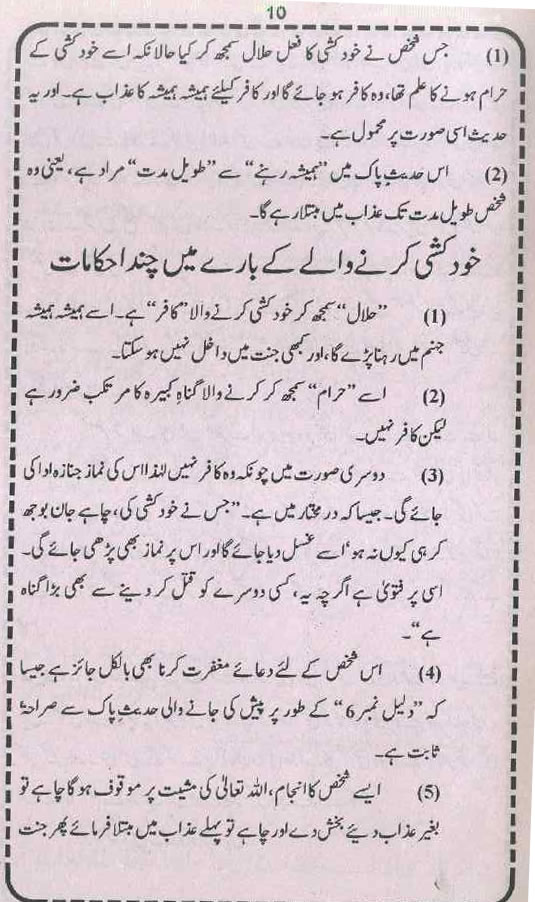 10
(1) جس شخص نے خودکشی کا فعل حلال سمجھ کر کیا حالانکہ اسے خودکشی کے
حرام ہونے کا علم تھا، وہ کافر ہو جائے گا اور کافر کیلئے ہمیشہ ہمیشہ کا عذاب ہے۔ اور یہ
حدیث اسی صورت پر محمول ہے۔
(2) اس حدیث پاک میں ”ہمیشہ رہنے“ سے ”طویل مدت“ مراد ہے، یعنی وہ
شخص طویل مدت تک عذاب میں مبتلا رہے گا۔
خودکشی کرنے والے کے بارے میں چند احکامات
(1) ”حلال“ سمجھ کر خودکشی کرنے والا ”کافر“ ہے۔ اسے ہمیشہ ہمیشہ
جہنم میں رہنا پڑے گا، اور کبھی جنت میں داخل نہیں ہو سکتا۔
(2) اسے ”حرام“ سمجھ کر کرنے والا گناہِ کبیرہ کا مرتکب ضرور ہے
لیکن کافر نہیں۔
(3) دوسری صورت میں چونکہ وہ کافر نہیں لہٰذا اس کی نماز جنازہ ادا کی
جائے گی۔ جیسا کہ در مختار میں ہے۔ ”جس نے خودکشی کی، چاہے جان بوجھ
کر ہی کیوں نہ ہو‘ اسے غسل دیا جائے گا اور اس پر نماز بھی پڑھی جائے گی۔
اسی پر فتویٰ ہے اگرچہ یہ، کسی دوسرے کو قتل کر دینے سے بھی بڑا گناہ
ہے“۔
(4) اس شخص کے لئے دعائے مغفرت کرنا بھی بالکل جائز ہے جیسا
کہ ”دلیل نمبر 6“ کے طور پر پیش کی جانے والی حدیثِ پاک سے صراحۃً
ثابت ہے۔
(5) ایسے شخص کا انجام، اللہ تعالیٰ کی مشیت پر موقوف ہو گا چاہے تو
بغیر عذاب دیئے بخش دے اور چاہے تو پہلے عذاب میں مبتلا فرمائے پھر جنت